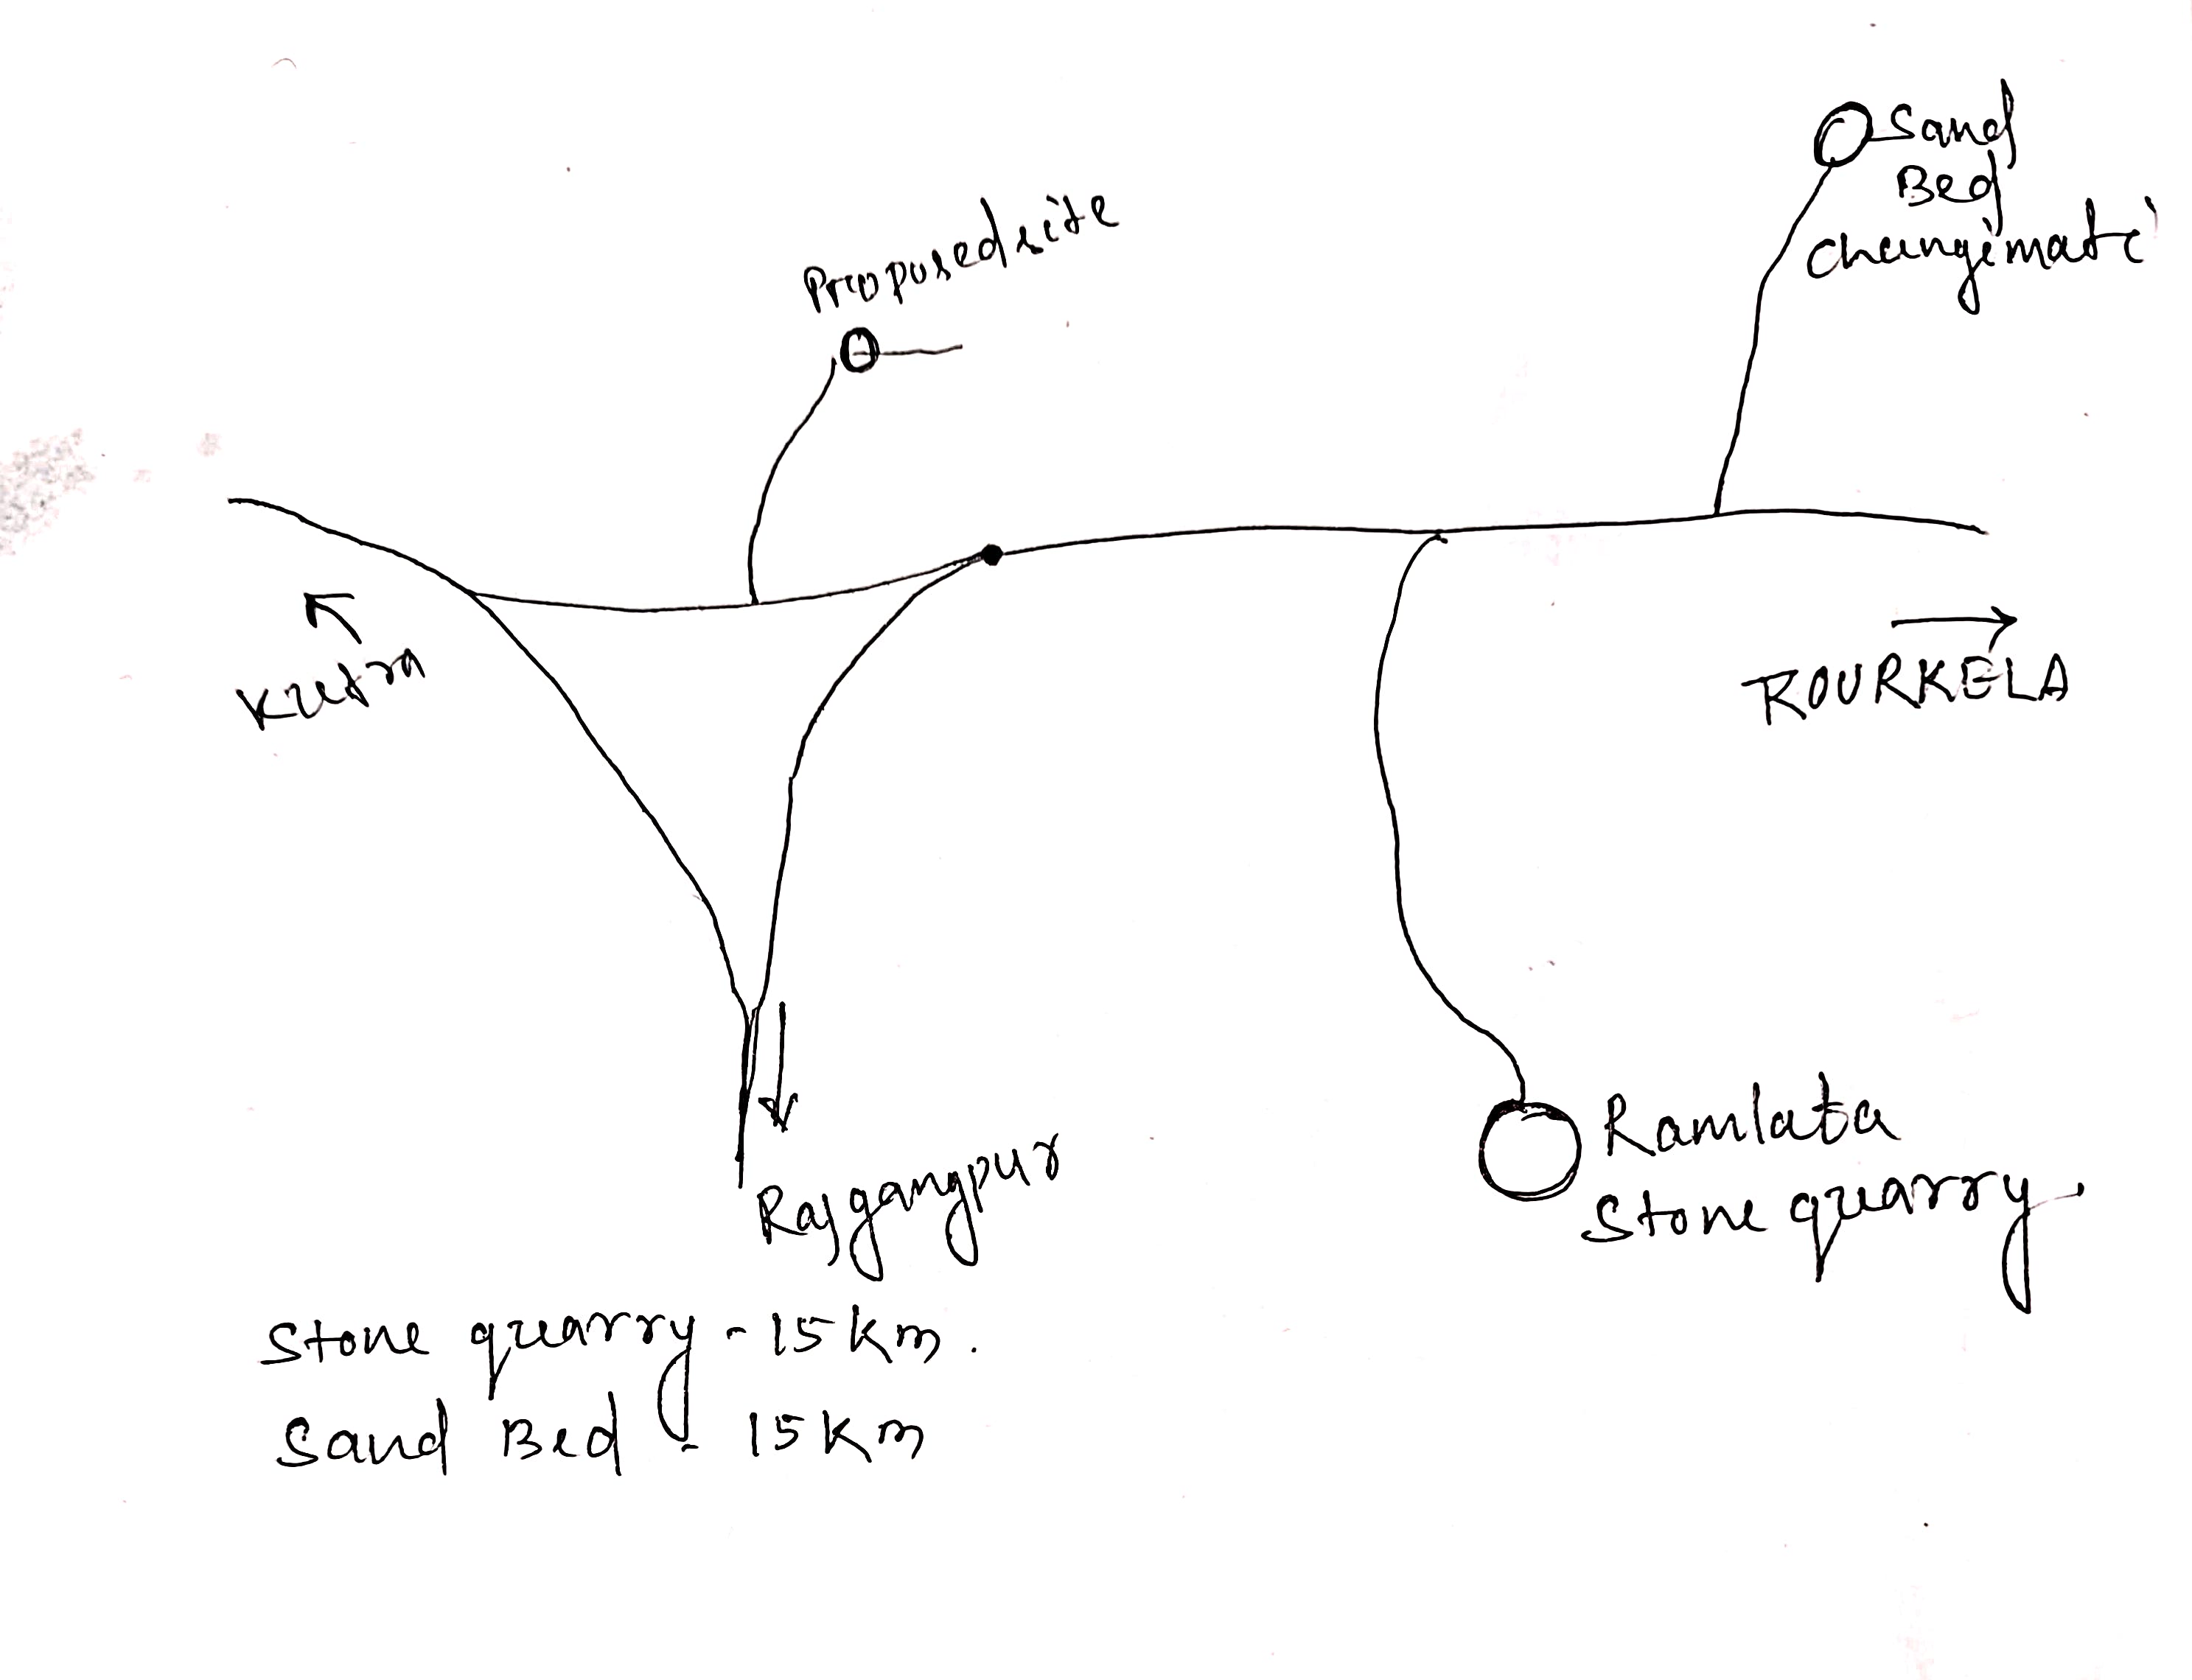 Proposed site
Sand
Bed
Chungimati
Kutra
ROURKELA
Rajgangpur
Ramlata
Stone quarry.
Stone quarry - 15 Km.
Sand Bed - 15 Km